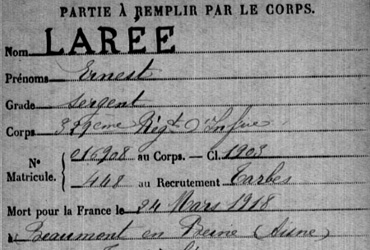 PARTIE À REMPLIR PAR LE CORPS.
Nom LARÉE
Prénoms Ernest
Grade Sergent
Corps Régt Infrie
N° Matricule. 016908 au Corps. — Cl. 1903
448 au Recrutement Tarbes
Mort pour la France le 24 Mars 1918
à Beaumont en Beine (Aisne)